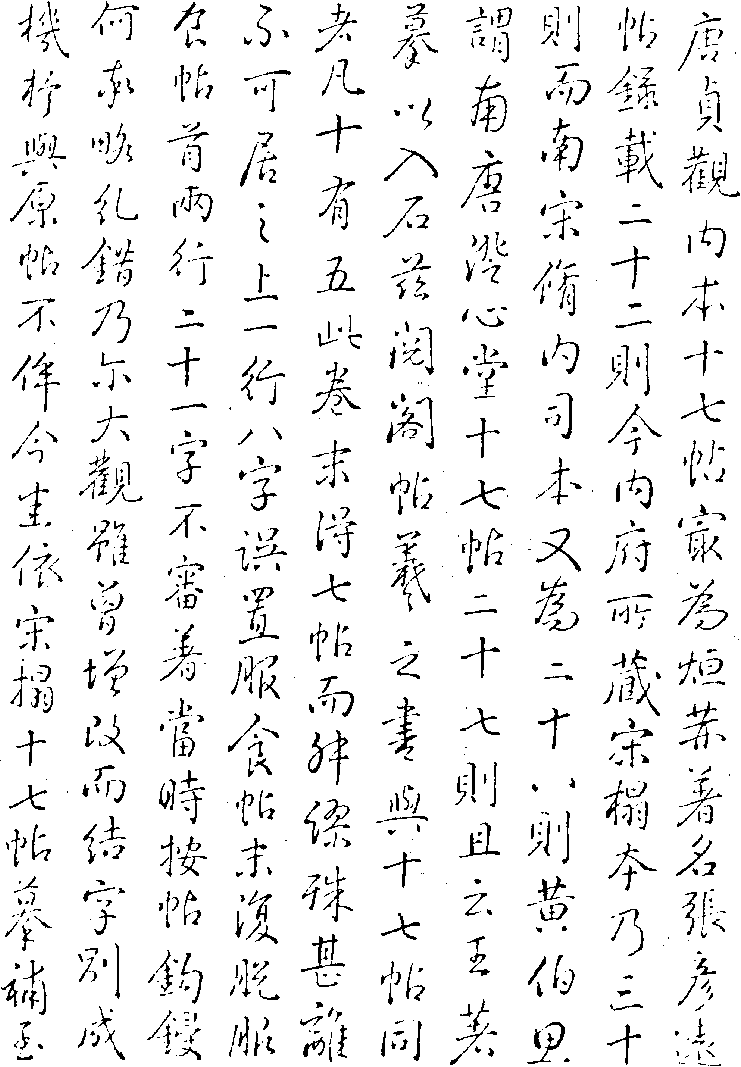 唐貞觀內本十七帖寂為烜赫著名張彥遠
帖錄載二十二則今內府所藏宋搨本乃三十
則而南宋脩內司本又為二十八則黃伯思
謂南唐澄心堂十七帖二十七則且云王著
摹以入石茲閱閣帖羲之書與十七帖同
者凡十有五此卷末得七帖而舛繆殊甚離
不可居之上一行八字誤置服食帖末復脫服
食帖首兩行二十一字不審著當時按帖鉤鋟
何率略乖錯乃爾大觀雖曾增改而結字別成
機杼與原帖不侔今悉依宋搨十七帖摹補至